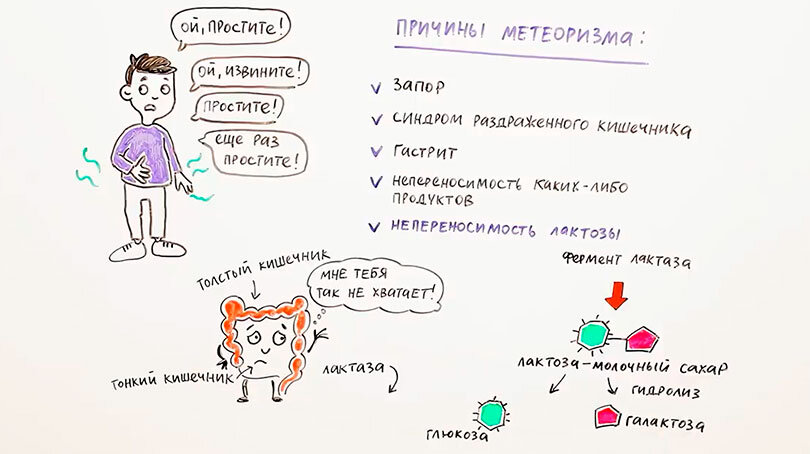 ой, простите!
ой, извините!
простите!
еще раз
простите!
Причины метеоризма:
запор
синдром раздраженного кишечника
гастрит
непереносимость каких-либо
продуктов
непереносимость лактозы
фермент лактаза
толстый кишечник
мне тебя
так не хватает!
тонкий кишечник
лактаза
лактоза-молочный сахар
гидролиз
глюкоза
галактоза